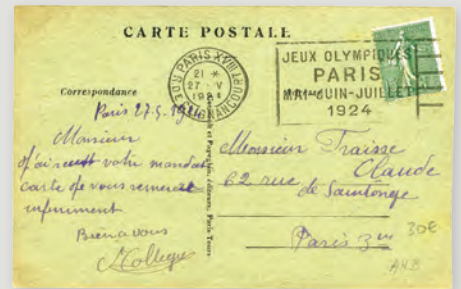 CARTE POSTALE
PARIS XVIII
R. DE CLIGNANCOURT
21 *
27 - V
1924
JEUX OLYMPIQUES
PARIS
MAI-JUIN-JUILLET
1924
Correspondance
Paris 27.5.1924
Monsieur
J'ai reçu votre mandat
carte je vous remercie
infiniment
Bien à vous
Monsieur Fraisse
Claude
62 rue
de Saintonge
Paris 3
30€